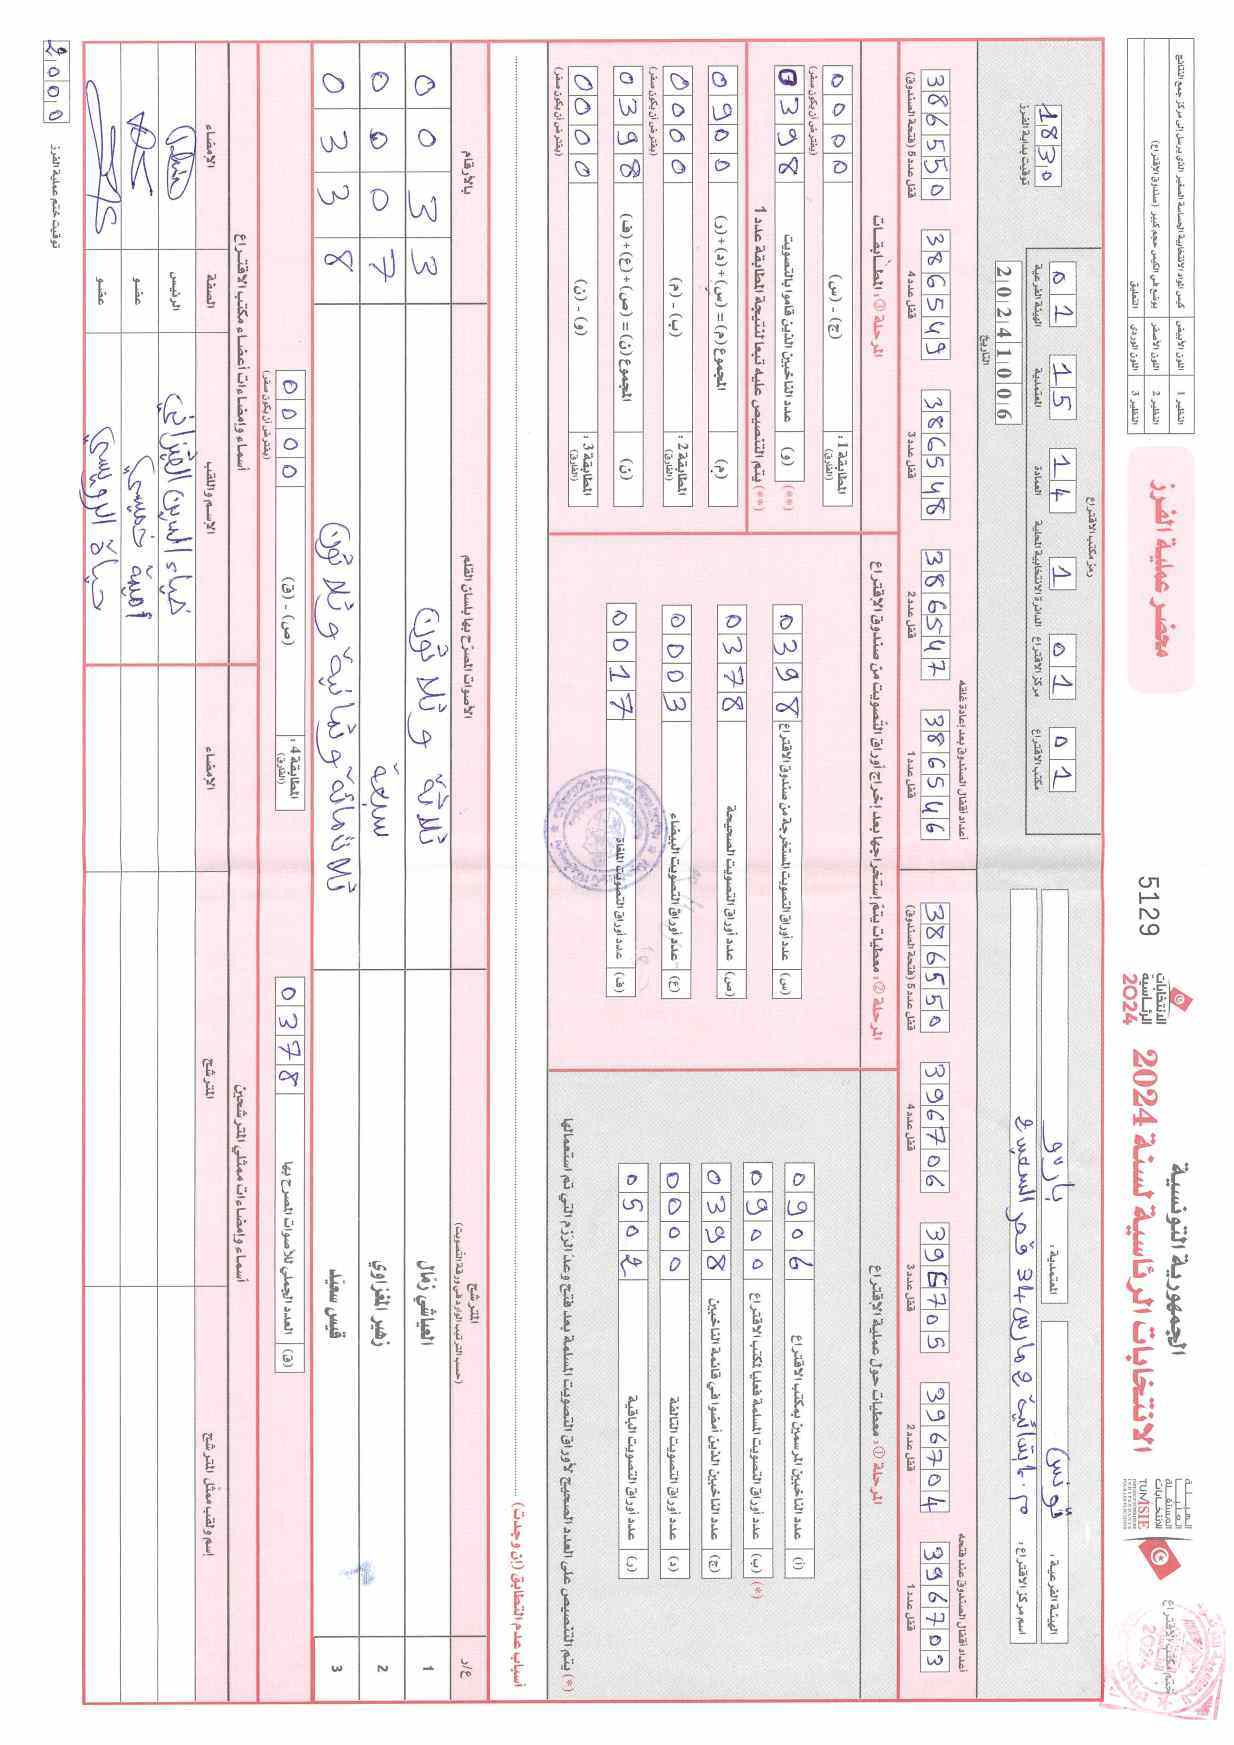 الجمهورية التونسية
الانتخابات الرئاسية لسنة 2024
الانتخابات
الرئاسية
2024
5129
محضر عملية الفرز
النظير 1 اللون الأبيض كيس المواد الانتخابية الحساسة الصغير الذي يرسل إلى مركز جمع النتائج
النظير 2 اللون الأصفر يوضع في الكيس حجم كبير (صندوق الاقتراع)
النظير 3 اللون الوردي التعليق
الهيئة العليا المستقلة للانتخابات
ختم مكتب الاقتراع
الهيئة الفرعية : تونس
المعتمدية : باردو
اسم مركز الاقتراع :
رمز مكتب الاقتراع
01 15 14 1 01 01
الهيئة الفرعية المعتمدية العمادة الدائرة الانتخابية المحلية مركز الاقتراع مكتب الاقتراع
20241006
التاريخ
1830
توقيت بداية الفرز
أعداد أقفال الصندوق عند فتحه
396703 قفل عدد 1
396704 قفل عدد 2
396705 قفل عدد 3
396706 قفل عدد 4
386550 قفل عدد 5 (فتحة الصندوق)
أعداد أقفال الصندوق بعد إعادة غلقه
386546 قفل عدد 1
386547 قفل عدد 2
386548 قفل عدد 3
386549 قفل عدد 4
386550 قفل عدد 5 (فتحة الصندوق)
المرحلة ① : معطيات حول عملية الاقتراع
(أ) عدد الناخبين المرسمين بمكتب الاقتراع 0906
(*) (ب) عدد أوراق التصويت المسلمة فعليا لمكتب الاقتراع 0900
(ج) عدد الناخبين الذين أمضوا في قائمة الناخبين 0398
(د) عدد أوراق التصويت التالفة 0000
(ر) عدد أوراق التصويت الباقية 0502
(*) يتم التنصيص على العدد الصحيح لأوراق التصويت المسلمة بعد فتح وعد الرزم التي تم استعمالها
المرحلة ② : معطيات يتم إستخراجها بعد إخراج أوراق التصويت من صندوق الإقتراع
(س) عدد أوراق التصويت المستخرجة من صندوق الاقتراع 0398
(ص) عدد أوراق التصويت الصحيحة 0378
(ع) عدد أوراق التصويت البيضاء 0003
(ف) عدد أوراق التصويت الملغاة 0017
المرحلة ③ : المطابقات
المطابقة 1 : (الفارق) (ج) - (س) 0000 (يفترض أن يكون صفر)
(**) (و) عدد الناخبين الذين قاموا بالتصويت 0398
(**) يتم التنصيص عليه تبعا لنتيجة المطابقة عدد 1
(م) المجموع (م) = (س)+(د)+(ر) 0900
المطابقة 2 : (الفارق) (ب) - (م) 0000 (يفترض أن يكون صفر)
(ن) المجموع (ن) = (ص)+(ع)+(ف) 0398
المطابقة 3 : (الفارق) (و) - (ن) 0000 (يفترض أن يكون صفر)
أسباب عدم التطابق (إن وجدت)
ع/ر المترشح (حسب الترتيب الوارد في ورقة التصويت) الأصوات المصرّح بها بلسان القلم بالأرقام
1 العياشي زمّال ثلاثة وثلاثون 0033
2 زهير المغزاوي سبعة 0007
3 قيس سعيّد ثلاثمائة وثمانية وثلاثون 0338
(ق) العدد الجملي للأصوات المصرح بها 0378
المطابقة 4 : (الفارق) (ص) - (ق) 0000 (يفترض أن يكون صفر)
أسماء وإمضاءات ممثلي المترشحين
إسم ولقب ممثل المترشح المترشح الإمضاء
أسماء وإمضاءات أعضاء مكتب الاقتراع
الإسم واللقب الصفة الإمضاء
ضياء الدين الرئيس
أمينة خميسي عضو
حياة الرويسي عضو
توقيت ختم عملية الفرز
2000